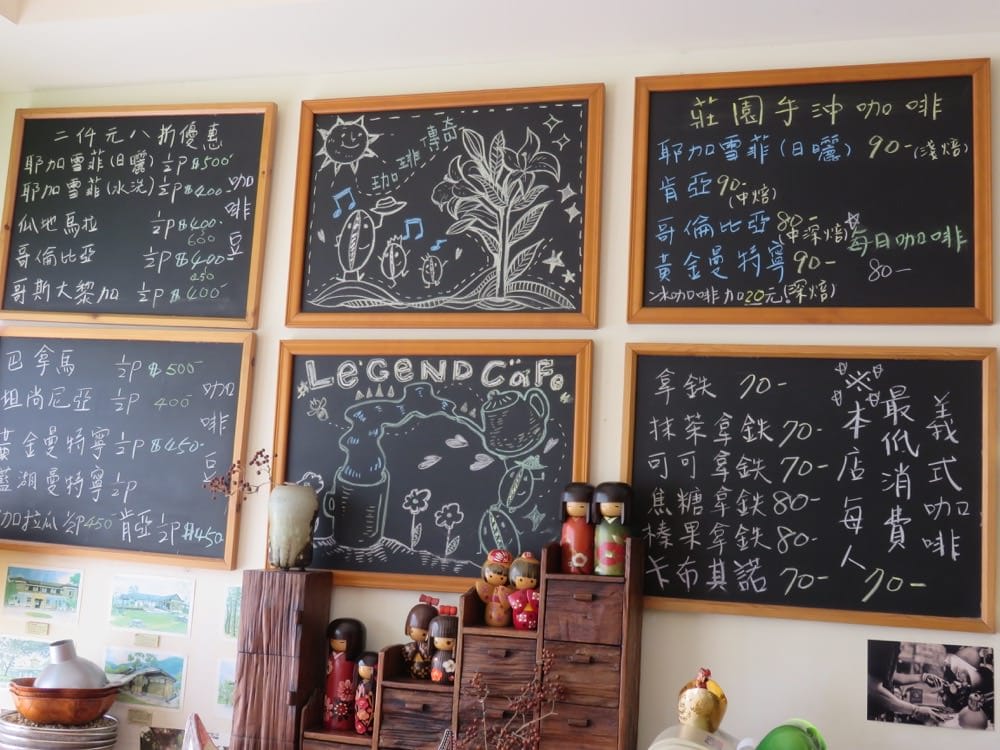 二仟元八折優惠
耶加雪菲(日曬) ½P $500-
耶加雪菲(水洗) ½P $400-
瓜地馬拉 ½P $400-
600
哥倫比亞 ½P $400-
450
哥斯大黎加 ½P $400-
咖啡豆
傳奇
珈琲
莊園手沖咖啡
耶加雪菲(日曬) 90-(淺焙)
肯亞 90-
(中焙)
哥倫比亞 80-
(中深焙)
黃金曼特寧 90-
(深焙)
冰咖啡加20元
每日咖啡
80-
巴拿馬 ½P $500-
坦尚尼亞 ½P 400-
黃金曼特寧 ½P $450-
藍湖曼特寧 ½P
加拉瓜 ½P 450-
肯亞 ½P $450-
咖啡豆
LEGEND CAFe
拿鉄 70-
抹茶拿鉄 70-
可可拿鉄 70-
焦糖拿鉄 80-
榛果拿鉄 80-
卡布其諾 70-
義式咖啡
※本店每人
最低消費
70-